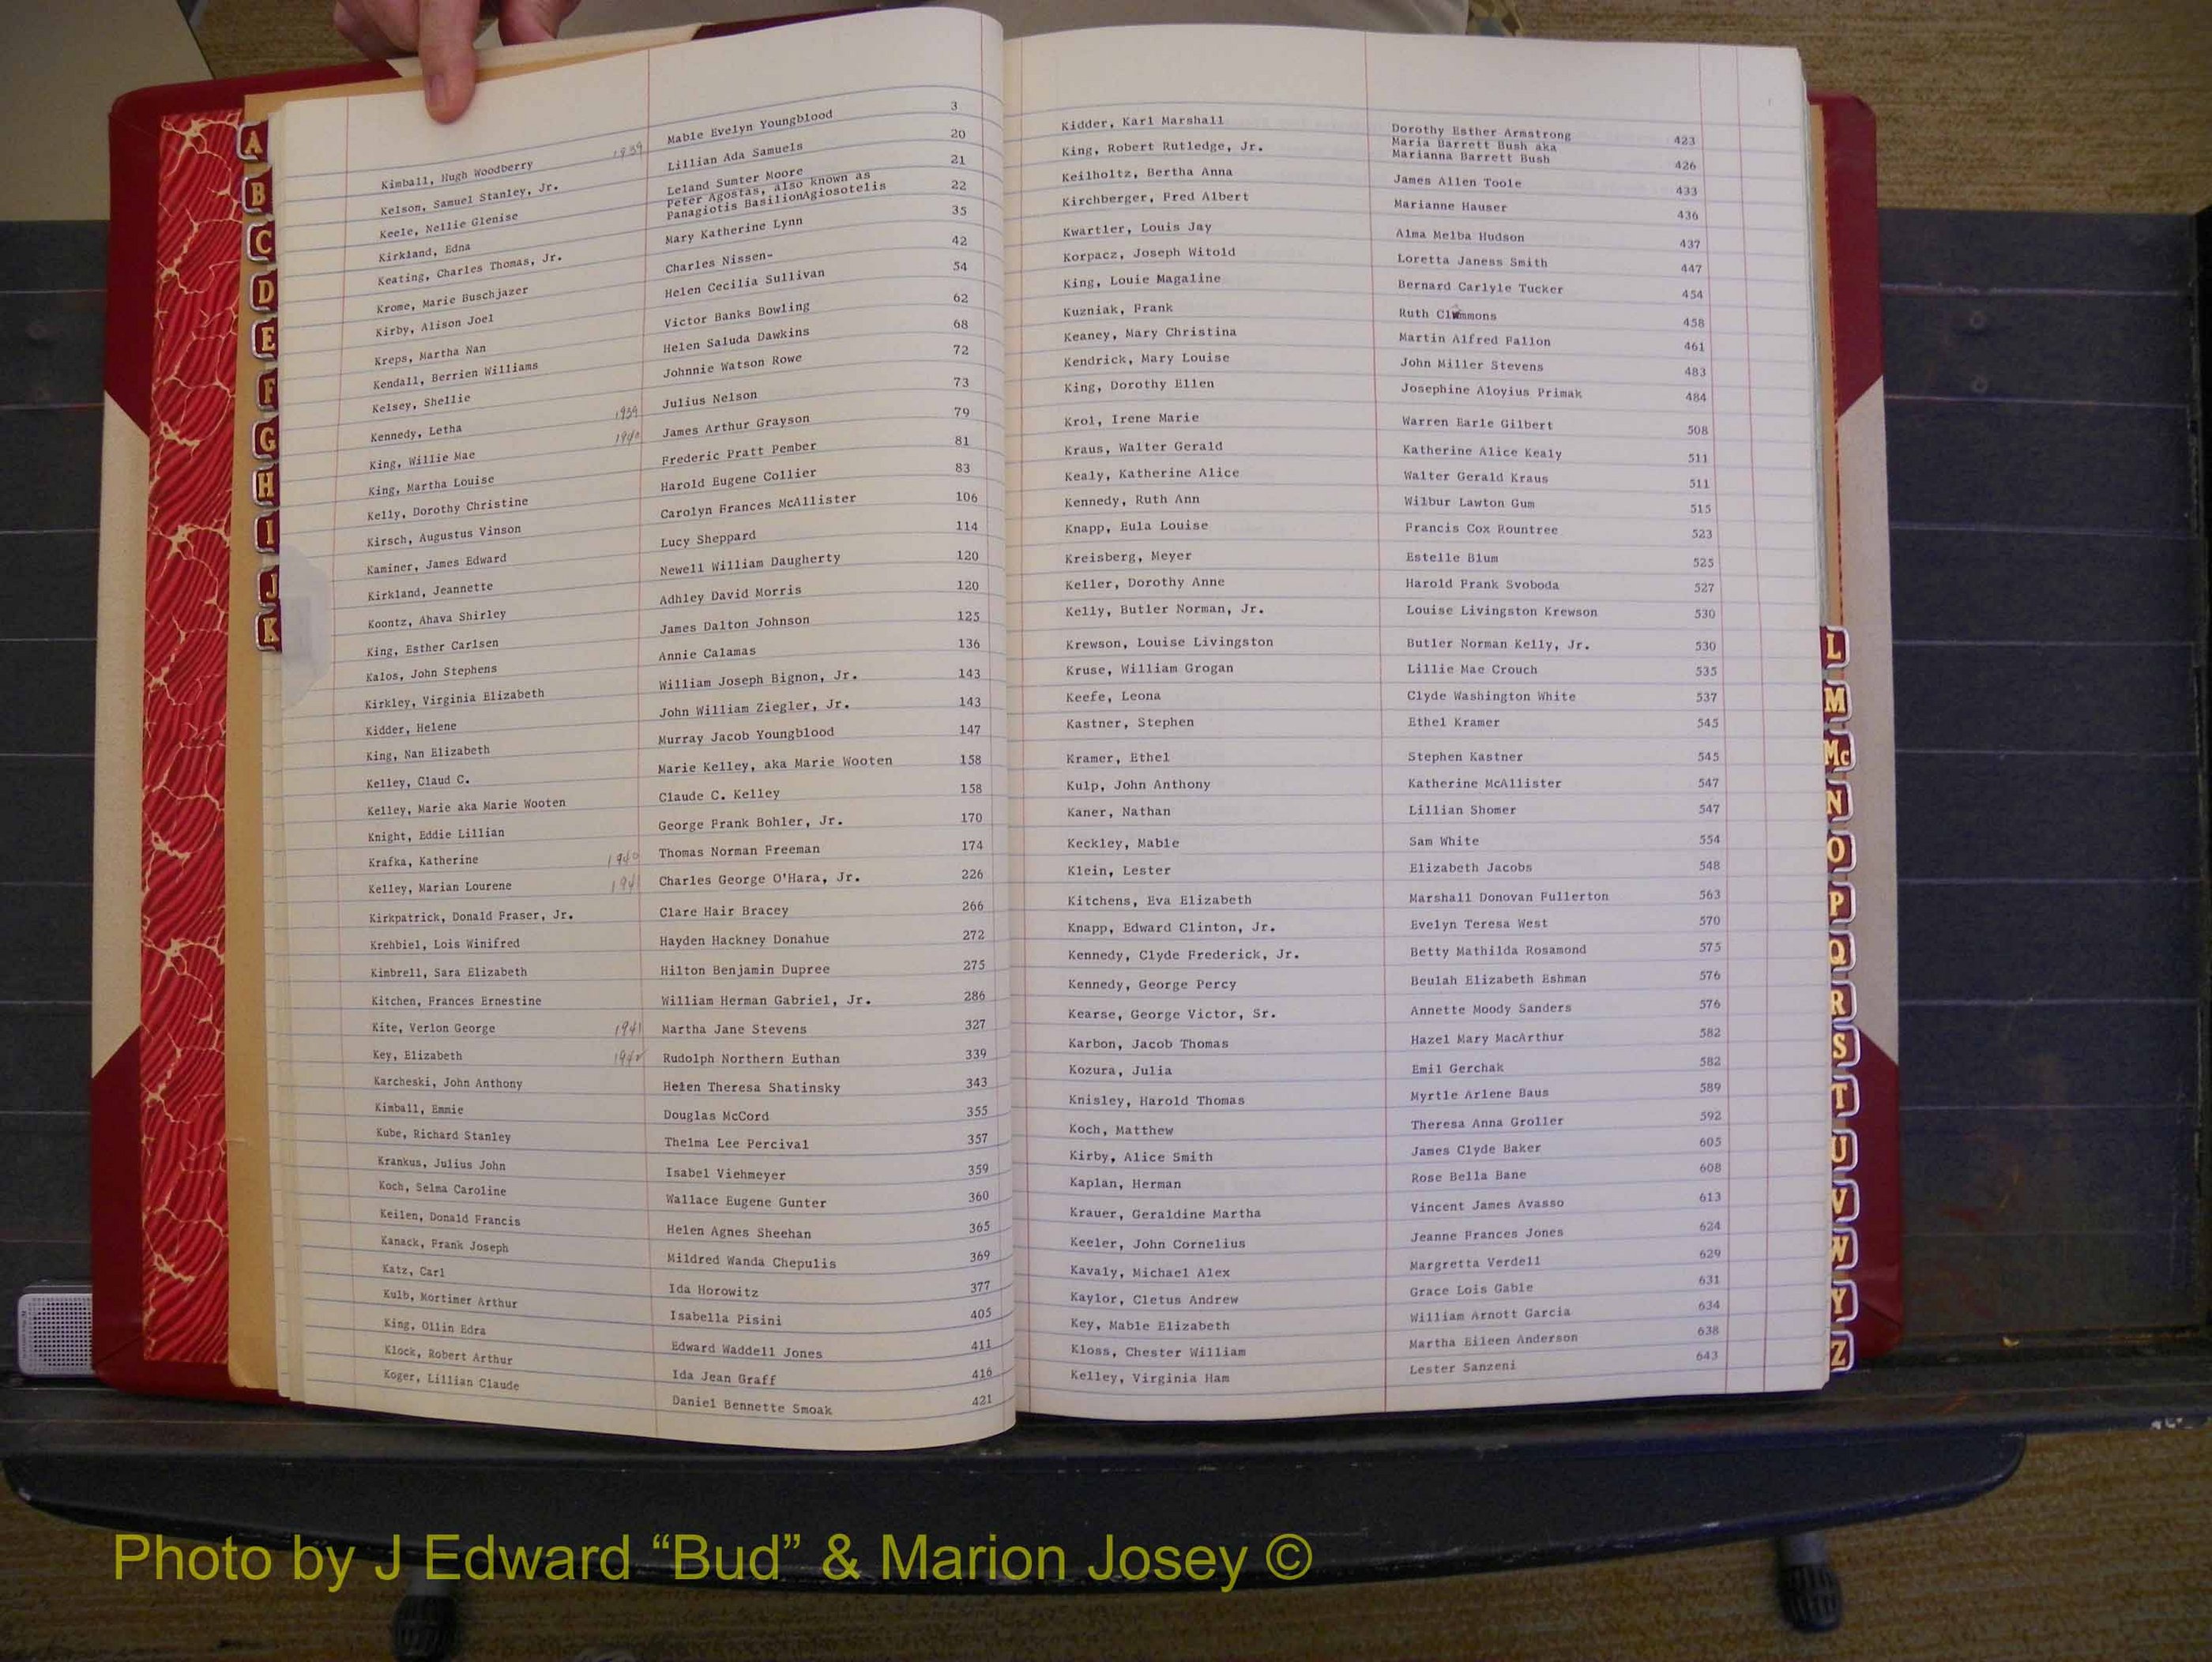 Kimball, Hugh Woodberry 1939 Mable Evelyn Youngblood 3
Kelson, Samuel Stanley, Jr. Lillian Ada Samuels 20
Keele, Nellie Glenise Leland Sumter Moore 21
Kirkland, Edna Peter Agostas, also known as
Panagiotis BasilionAgiosotelis 22
Keating, Charles Thomas, Jr. Mary Katherine Lynn 35
Krome, Marie Buschjazer Charles Nissen- 42
Kirby, Alison Joel Helen Cecilia Sullivan 54
Kreps, Martha Nan Victor Banks Bowling 62
Kendall, Berrien Williams Helen Saluda Dawkins 68
Kelsey, Shellie Johnnie Watson Rowe 72
Kennedy, Letha 1939 Julius Nelson 73
King, Willie Mae 1940 James Arthur Grayson 79
King, Martha Louise Frederic Pratt Pember 81
Kelly, Dorothy Christine Harold Eugene Collier 83
Kirsch, Augustus Vinson Carolyn Frances McAllister 106
Kaminer, James Edward Lucy Sheppard 114
Kirkland, Jeannette Newell William Daugherty 120
Koontz, Ahava Shirley Adhley David Morris 120
King, Esther Carlsen James Dalton Johnson 125
Kalos, John Stephens Annie Calamas 136
Kirkley, Virginia Elizabeth William Joseph Bignon, Jr. 143
Kidder, Helene John William Ziegler, Jr. 143
King, Nan Elizabeth Murray Jacob Youngblood 147
Kelley, Claud C. Marie Kelley, aka Marie Wooten 158
Kelley, Marie aka Marie Wooten Claude C. Kelley 158
Knight, Eddie Lillian George Frank Bohler, Jr. 170
Krafka, Katherine 1940 Thomas Norman Freeman 174
Kelley, Marian Lourene 1941 Charles George O'Hara, Jr. 226
Kirkpatrick, Donald Fraser, Jr. Clare Hair Bracey 266
Krehbiel, Lois Winifred Hayden Hackney Donahue 272
Kimbrell, Sara Elizabeth Hilton Benjamin Dupree 275
Kitchen, Frances Ernestine William Herman Gabriel, Jr. 286
Kite, Verlon George 1941 Martha Jane Stevens 327
Key, Elizabeth 1942 Rudolph Northern Euthan 339
Karcheski, John Anthony Helen Theresa Shatinsky 343
Kimball, Emmie Douglas McCord 355
Kube, Richard Stanley Thelma Lee Percival 357
Krankus, Julius John Isabel Viehmeyer 359
Koch, Selma Caroline Wallace Eugene Gunter 360
Keilen, Donald Francis Helen Agnes Sheehan 365
Kanack, Frank Joseph Mildred Wanda Chepulis 369
Katz, Carl Ida Horowitz 377
Kulb, Mortimer Arthur Isabella Pisini 405
King, Ollin Edra Edward Waddell Jones 411
Klock, Robert Arthur Ida Jean Graff 416
Koger, Lillian Claude Daniel Bennette Smoak 421
Kidder, Karl Marshall Dorothy Esther Armstrong 423
King, Robert Rutledge, Jr. Maria Barrett Bush aka
Marianna Barrett Bush 426
Keilholtz, Bertha Anna James Allen Toole 433
Kirchberger, Fred Albert Marianne Hauser 436
Kwartler, Louis Jay Alma Melba Hudson 437
Korpacz, Joseph Witold Loretta Janess Smith 447
King, Louie Magaline Bernard Carlyle Tucker 454
Kuzniak, Frank Ruth Clemmons 458
Keaney, Mary Christina Martin Alfred Fallon 461
Kendrick, Mary Louise John Miller Stevens 483
King, Dorothy Ellen Josephine Aloyius Primak 484
Krol, Irene Marie Warren Earle Gilbert 508
Kraus, Walter Gerald Katherine Alice Kealy 511
Kealy, Katherine Alice Walter Gerald Kraus 511
Kennedy, Ruth Ann Wilbur Lawton Gum 515
Knapp, Eula Louise Francis Cox Rountree 523
Kreisberg, Meyer Estelle Blum 525
Keller, Dorothy Anne Harold Frank Svoboda 527
Kelly, Butler Norman, Jr. Louise Livingston Krewson 530
Krewson, Louise Livingston Butler Norman Kelly, Jr. 530
Kruse, William Grogan Lillie Mae Crouch 535
Keefe, Leona Clyde Washington White 537
Kastner, Stephen Ethel Kramer 545
Kramer, Ethel Stephen Kastner 545
Kulp, John Anthony Katherine McAllister 547
Kaner, Nathan Lillian Shomer 547
Keckley, Mable Sam White 554
Klein, Lester Elizabeth Jacobs 548
Kitchens, Eva Elizabeth Marshall Donovan Fullerton 563
Knapp, Edward Clinton, Jr. Evelyn Teresa West 570
Kennedy, Clyde Frederick, Jr. Betty Mathilda Rosamond 575
Kennedy, George Percy Beulah Elizabeth Eshman 576
Kearse, George Victor, Sr. Annette Moody Sanders 576
Karbon, Jacob Thomas Hazel Mary MacArthur 582
Kozura, Julia Emil Gerchak 582
Knisley, Harold Thomas Myrtle Arlene Baus 589
Koch, Matthew Theresa Anna Groller 592
Kirby, Alice Smith James Clyde Baker 605
Kaplan, Herman Rose Bella Bane 608
Krauer, Geraldine Martha Vincent James Avasso 613
Keeler, John Cornelius Jeanne Frances Jones 624
Kavaly, Michael Alex Margretta Verdell 629
Kaylor, Cletus Andrew Grace Lois Gable 631
Key, Mable Elizabeth William Arnott Garcia 634
Kloss, Chester William Martha Eileen Anderson 638
Kelley, Virginia Ham Lester Sanzeni 643
A
B
C
D
E
F
G
H
I
J
K
L
M
Mc
N
O
P
Q
R
S
T
U
V
W
Y
Z
Photo by J Edward “Bud” & Marion Josey ©